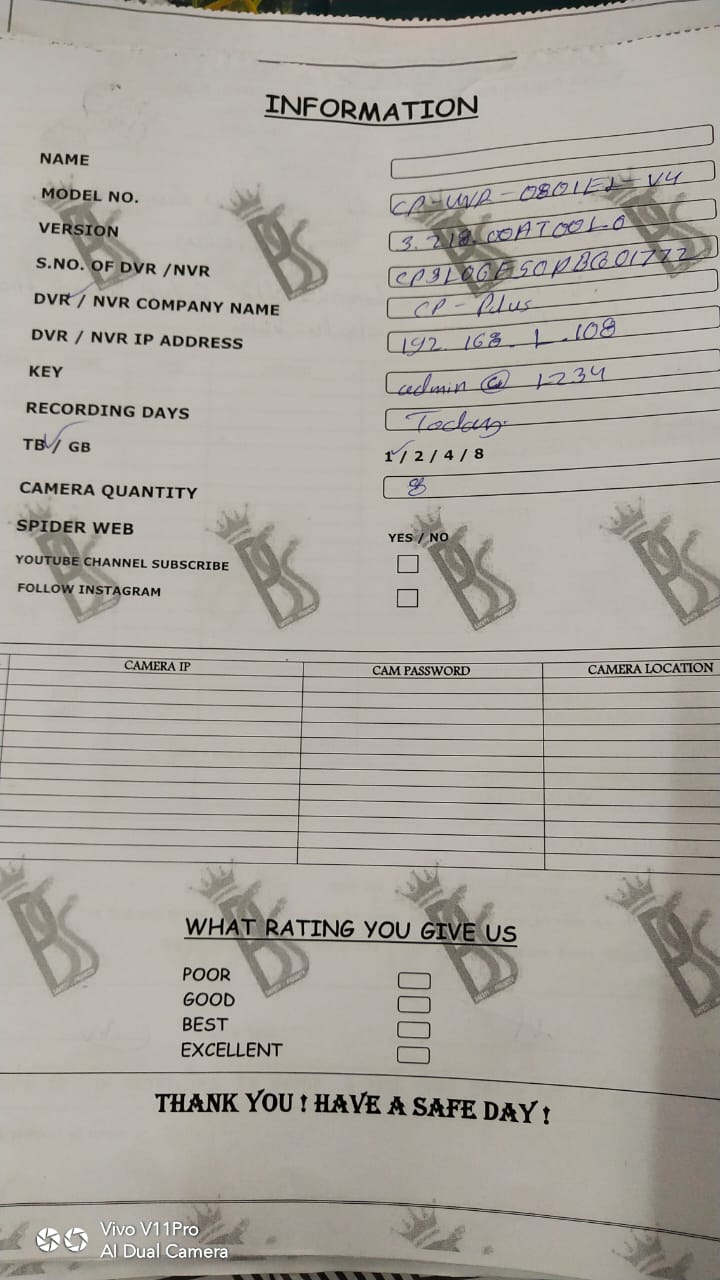 INFORMATION
NAME
MODEL NO. CP-UVR-0801E1-V4
VERSION
S.NO. OF DVR /NVR
DVR / NVR COMPANY NAME CP-Plus
DVR / NVR IP ADDRESS 192.168.1.108
KEY admin @ 1234
RECORDING DAYS Today
TB / GB 1 / 2 / 4 / 8
CAMERA QUANTITY 8
SPIDER WEB YES / NO
YOUTUBE CHANNEL SUBSCRIBE
FOLLOW INSTAGRAM
CAMERA IP CAM PASSWORD CAMERA LOCATION
WHAT RATING YOU GIVE US
POOR
GOOD
BEST
EXCELLENT
THANK YOU ! HAVE A SAFE DAY !
Vivo V11Pro
AI Dual Camera